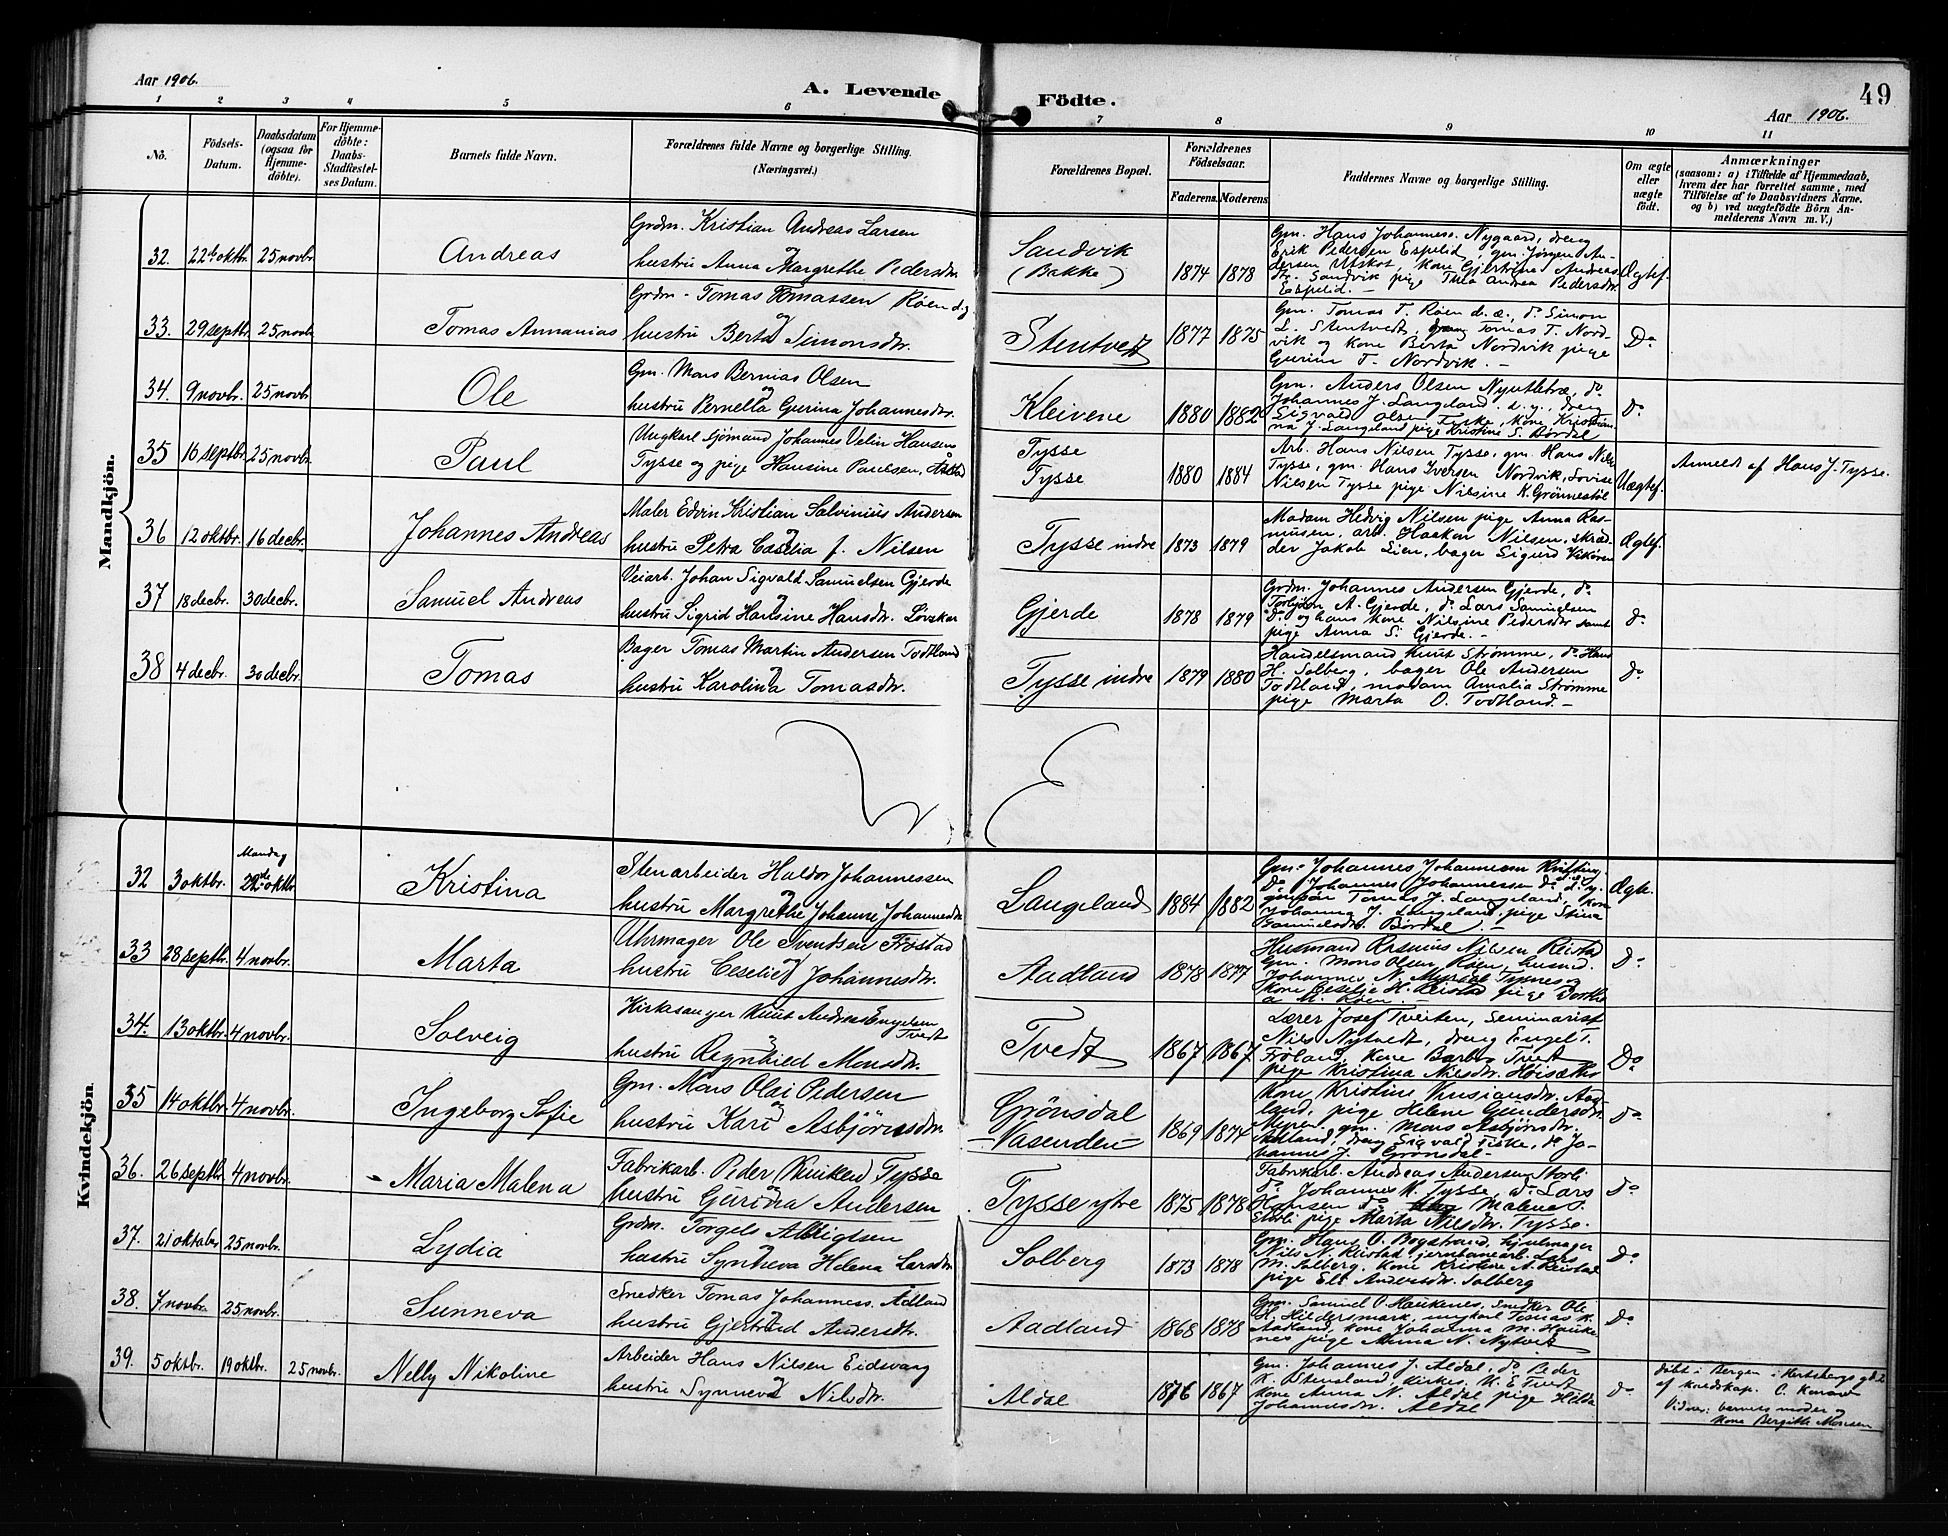 Aar 1906.
A. Levende Födte.
49
Aar 1906.
1 2 3 4 5 6 7 8 9 10 11
No.
Födsels-Datum.
Daabsdatum (ogsaa for Hjemme-döbte).
For Hjemme-döbte: Daabs-Stadfæstel-ses Datum.
Barnets fulde Navn.
Forældrenes fulde Navne og borgerlige Stilling.
(Næringsvei.)
Forældrenes Bopæl.
Forældrenes Födselsaar.
Faderens. Moderens.
Faddernes Navne og borgerlige Stilling.
Om ægte eller uægte födt.
Anmærkninger
(saasom: a) i Tilfælde af Hjemmedaab,
hvem der har forrettet samme, med
Tilföielse af to Daabsvidners Navne.
og b) ved uægtefödte Börn An-
melderens Navn m. V.)
Mandkjön.
32. 22de oktbr. 25 novbr. Andreas
Grdm. Kristian Andreas Larsen
og
hustru Anna Margrethe Pedersdtr.
Sandvik
(Bakke) 1874 1878
Gm. Hans Johanness. Nygaard, dreng
Erik Pedersen Espelid, gm. Jörgen An-
dersen Utskot, kone Gjertrine Andreas
dtr. Sandvik pige Thea Andrea Pedersdtr.
Espelid. —
Ægtef.
33. 29 septbr. 25 novbr. Tomas Annanias
Grdm. Tomas Tomassen Røen d.y
og
hustru Berta Simonsdtr.
Stentvedt 1877 1875
Gm. Tomas T. Røen d. æ., do Simon
L. Stentvedt, Tomas T. Nord-
vik og kone Berta Nordvik pige
Gurine T. Nordvik. —
Do
34. 9 novbr. 25 novbr. Ole
Gm. Mons Bernias Olsen
og
hustru Pernella Gurina Johannesdtr.
Kleivene 1880 1882
Gm. Anders Olsen Nyutlebræ, do
Johannes J. Langeland d. y., dreng
Sigvald Olsen Fiske, kone Kristian-
na J. Langeland pige Kristine S. Børdal
do
35 16 septbr. 25 novbr. Paul
Ungkarl sjømand Johannes Velin Hansen
Tysse og pige Hansine Paulsen,
Tysse
Tysse 1880 1884
Arb. Hans Nielsen Tysse, gm. Hans Nils
Tysse, gm. Hans Iversen Nordvik, Lovise
Nilsen Tysse pige Nilsine K. Grønnestøl
Uægtef.
Anmeldt af Hans J. Tysse.
36 12 oktbr. 16 decbr. Johannes Andreas
Maler Edvin Kristian Salvinius Andersen
og
hustru Petra Casilia f. Nilsen
Tysse indre 1873 1879
Madam Hedvig Nilsen pige Anna Ras-
mussen, arb. Haakon Nilsen, skræd-
der Jakob Lien, bager Sigurd Vikøren
Ægtef.
37 18 decbr. 30 decbr. Samuel Andreas
Veiarb. Johan Sigvald Samuelsen Gjerde
og
hustru Sigrid Hansine Hansdtr. Løvskar
Gjerde 1878 1879
Grdm. Johannes Andersen Gjerde, do
Torbjørn A. Gjerde, do Lars Samuelsen
do og hans kone Nilsine Pedersdtr samt
pige Anna S. Gjerde. —
do
38 4 decbr. 30 decbr. Tomas
Bager Tomas Martin Andersen Todtland
og
hustru Karolina Tomasdtr.
Tysse indre 1879 1880
Handelsmand Knut Strømme, do Hans
H. Solberg, bager Ole Andersen
Todtland, madam Amalia Strømme
pige Marta O. Todtland. —
do
Kvindekjön.
32 3 oktbr. Mandag 22de oktbr Kristina
Stenarbeider Haldor Johannessen
og
hustru Margrethe Johanne Johannesdtr
Langeland 1884 1882
Gm. Johannes Johannessen
Do Johannes Johannessen do d. y.
Tomas J. Langeland, kone
Johanna J. Langeland, pige Stina
Samuelsdtr. Børdal. —
Ægte.
33 28 septbr. 4 novbr. Marta
Uhrmager Ole Svendsen Frøstad
og
hustru Ceselie Johannesdtr.
Aadland 1878 1877
Husmand Rasmus Nilsen Reistad
Gm. Mons Olsen Røen, husmd.
Johannes N. Myrdal Tysnes og
kone Ceselie H. Reistad pige Dorthe
a M. Røen. —
Do
34. 13 oktbr. 4 novbr. Solveig
Kirkesanger Knut Andreas Engelsen
Tvedt
og
hustru Regnhild Monsdtr.
Tvedt 1867 1867
Lærer Josef Tveiten, Seminarist
Nils Nytvedt, dreng Engel T.
Frøland, kone Barbro Tvedt
pige Kristina Nilsdtr. Høisæther
Do
35 14 oktbr. 4 novbr. Ingeborg Sofie
Gm. Mons Olai Pedersen
og
hustru Kari Asbjörnsdtr.
Grönsdal
— Vasenden — 1869 1874
Kone Kristine Kristiansdtr. Aad-
land, pige Helene Gundersdtr.
Myren, gm. Mons Asbjørnsdtr.
Aadland, dreng Sigvald Fiske, do Jo-
hannes J. Grönsdal —
do
36. 26 septbr. 4 novbr. Maria Malena
Fabrikarb. Peder (Kuiken) Tysse
og
hustru Gurina Andersen
Tysse ytre 1875 1878
Fabrikarb. Andreas Andersen Storli
do Johannes K. Tysse, do Lars
Hansen do Malena P.
pige Marta Nilsdtr. Tysse.
do
37. 21 oktober 25 novbr. Lydia
Grdm. Torgels Albrigtsen
og
hustru Synneva Helena Larsdtr
Solberg 1873 1878
Gm. Hans O. Bogstrand, hjulmager
Nils N. Reistad, jernbanearb. Lars
M. Solberg, kone Kristine A. Reistad
pige Eli Andersdtr. Solberg
do
38. 7 novbr 25 novbr. Sunneva
Snedker Tomas Johanness. Adland
og
hustru Gjertrud Andersdtr.
Aadland 1868 1878
Gm. Samuel O. Haukenes, snedker Ole
H. Hildersmark, ungkarl Tomas K.
Aadland, kone Johanna M. Hauke-
nes pige Anna N. Nytvedt
do
39. 5 oktbr. 19 oktbr. 25 novbr. Nelly Nikoline
Arbeider Hans Nilsen Eidsvaag
og
hustru Synneva Nilsdtr.
Aldal 1876 1867
Gm. Johannes J. Aldal, do Peder
K. Ostensland, Kirkes. K. E. Tvedt
kone Anna N. Aldal pige Hilda
Johannesdtr. Aldal
do
døbt i Bergen i
af kaldskap. C.
Vidner: barnets moder og
kone Bergitte Monsen